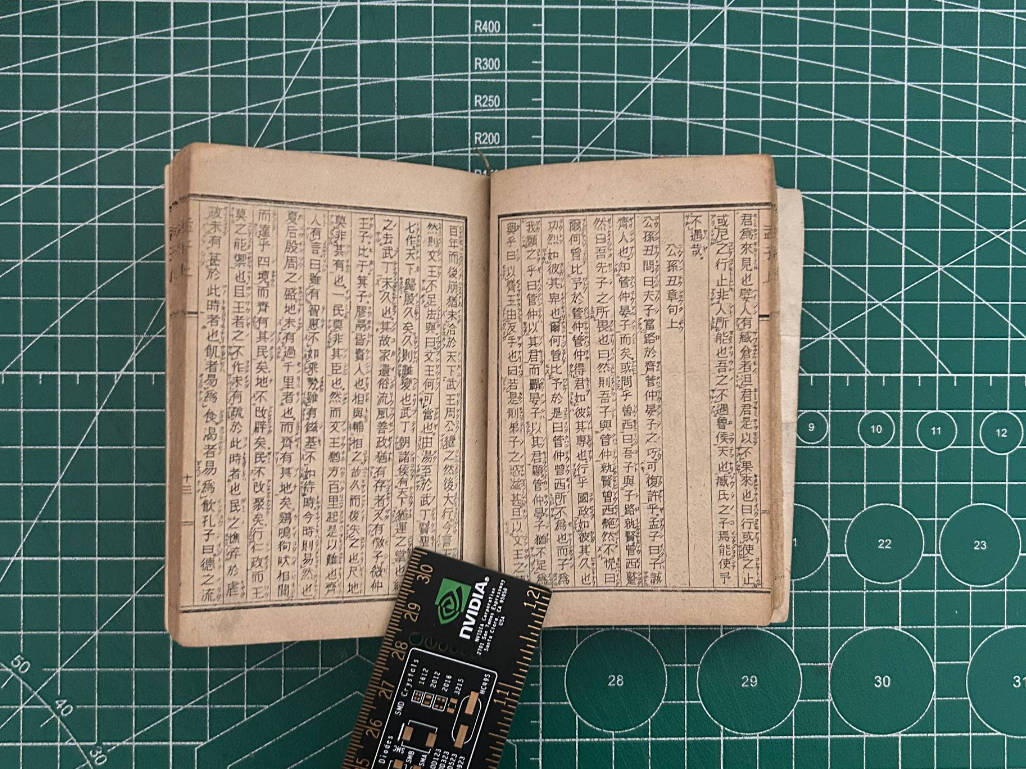 R400
R300
R250
R200
君爲來見也嬖人有臧倉者沮君君是以不果來也曰行或使之止
或尼之行止非人所能也吾之不遇魯侯天也臧氏之子焉能使予
不遇哉
公孫丑章句上
公孫丑問曰夫子當路於齊管仲晏子之功可復許乎孟子曰子誠
齊人也知管仲晏子而已矣或問乎曾西曰吾子與子路孰賢曾西蹵
然曰吾先子之所畏也曰然則吾子與管仲孰賢曾西艴然不悅曰
爾何曾比予於管仲管仲得君如彼其專也行乎國政如彼其久也
功烈如彼其卑也爾何曾比予於是曰管仲曾西之所不爲也而子爲
我願之乎曰管仲以其君霸晏子以其君顯管仲晏子猶不足爲
與乎曰以齊王由反手也曰若是則弟子之惑滋甚且以文王之
百年而後崩猶未洽於天下武王周公繼之然後大行今言
然則文王不足法與曰文王何可當也由湯至於武丁賢聖
七作天下歸殷久矣久則難變也武丁朝諸侯有天下猶運之掌也
之去武丁未久也其故家遺俗流風善政猶有存者又有微子微仲
王子比干箕子膠鬲皆賢人也相與輔相之故久而後失之也尺地
莫非其有也一民莫非其臣也然而文王猶方百里起是以難也齊
人有言曰雖有智慧不如乘勢雖有鎡基不如待時今時則易然也
夏后殷周之盛地未有過千里者也而齊有其地矣鷄鳴狗吠相聞
而達乎四境而齊有其民矣地不改辟矣民不改聚矣行仁政而王
莫之能禦也且王者之不作未有疏於此時者也民之憔悴於虐
故未有甚於此時者也飢者易爲食渴者易爲飲孔子曰德之流
十三
9
10
11
12
22
23
28
29
30
31
50
40
30
NVIDIA
NVIDIA Corporation
2701 San Tomas Expressway
Santa Clara, CA 95050
USA
30
29
28
27
26
12
11
SMD Crystals
1612
2012
2016
3215
HC49S
Diodes
SMB
SMA